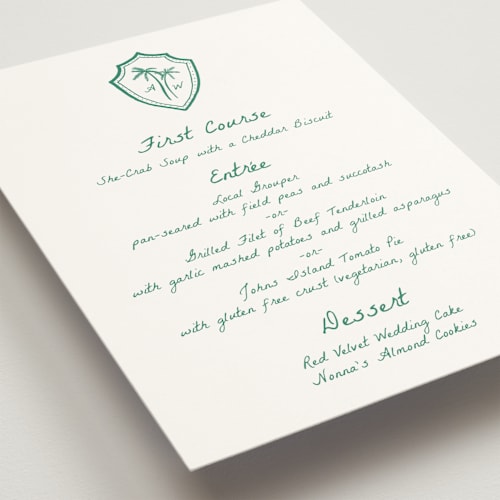 A W
First Course
She-Crab Soup with a Cheddar Biscuit
Entrée
Local Grouper
pan-seared with field peas and succotash
-or-
Grilled Filet of Beef Tenderloin
with garlic mashed potatoes and grilled asparagus
-or-
Johns Island Tomato Pie
with gluten free crust (vegetarian, gluten free)
Dessert
Red Velvet Wedding Cake
Nonna's Almond Cookies